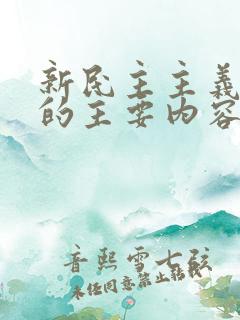 新民主主义
的主要内容
音熙雪七弦
未经同意禁止转载